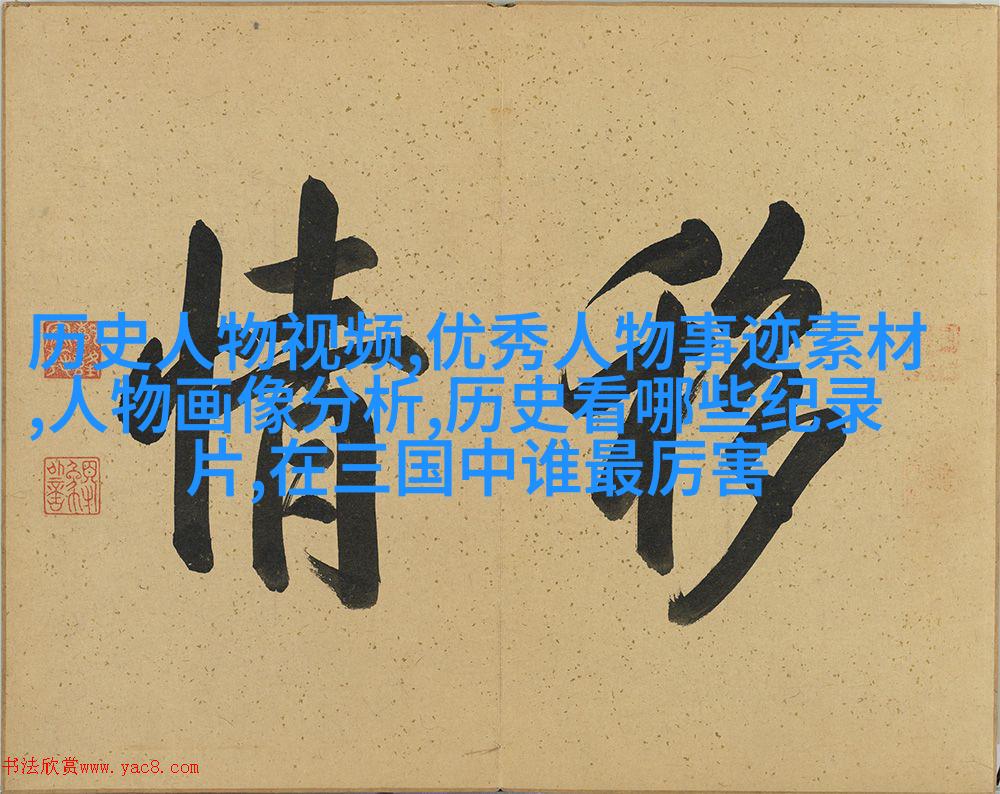 移情
历史人物视频,优秀人物事迹素材
,人物画像分析,历史看哪些纪录
片,在三国中谁最厉害
书法欣赏www.yac8.com